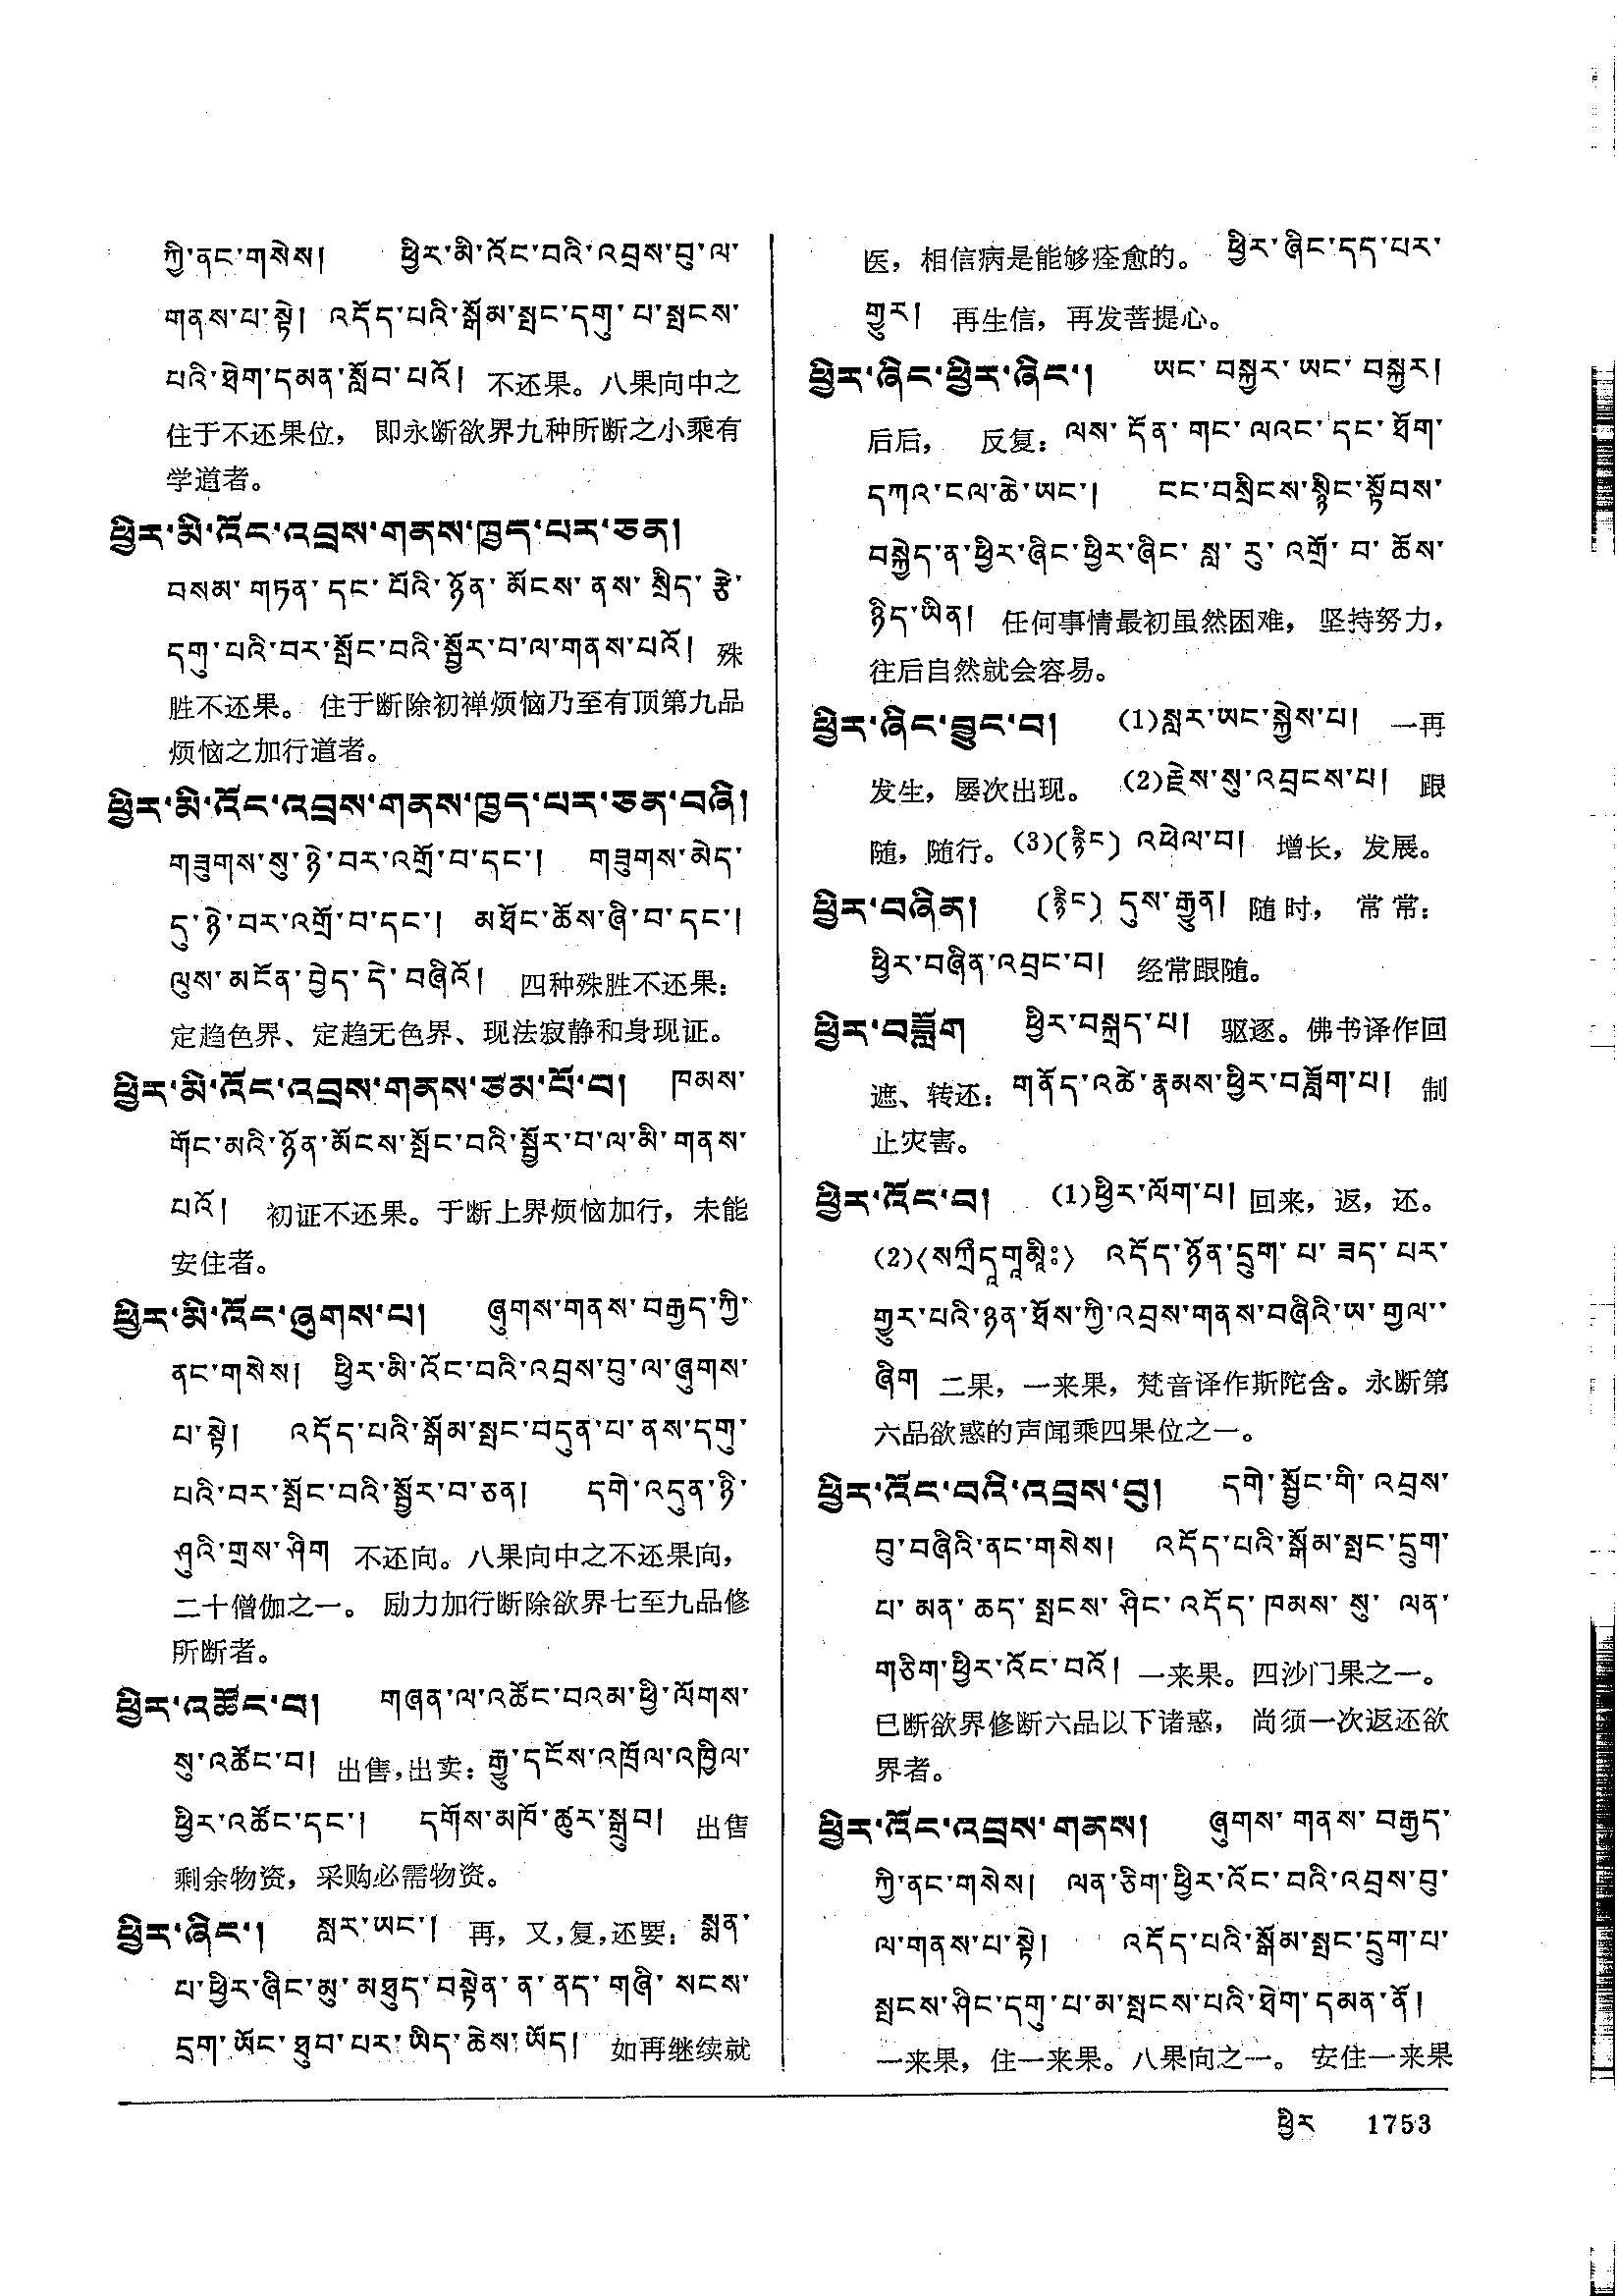 ཀྱི་ནང་གསེས། ཕྱིར་མི་འོང་བའི་འབྲས་བུ་ལ་
གནས་པ་སྟེ། འདོད་པའི་སྒོམ་སྤང་དགུ་པ་སྤངས་
པའི་ཐེག་དམན་སློབ་པའོ། 不还果。八果向中之
住于不还果位， 即永断欲界九种所断之小乘有
学道者。
ཕྱིར་མི་འོང་འབྲས་གནས་ཁྱད་པར་ཅན།
བསམ་གཏན་དང་པོའི་ཉོན་མོངས་ནས་སྲིད་རྩེ་
དགུ་པའི་བར་སྤོང་བའི་སྦྱོར་བ་ལ་གནས་པའོ། 殊
胜不还果。 住于断除初禅烦恼乃至有顶第九品
烦恼之加行道者。
ཕྱིར་མི་འོང་འབྲས་གནས་ཁྱད་པར་ཅན་བཞི།
གཟུགས་སུ་ཉེ་བར་འགྲོ་བ་དང་། གཟུགས་མེད་
དུ་ཉེ་བར་འགྲོ་བ་དང་། མཐོང་ཆོས་ཞི་བ་དང་།
ལུས་མངོན་བྱེད་དེ་བཞིའོ། 四种殊胜不还果：
定趋色界、定趋无色界、现法寂静和身现证。
ཕྱིར་མི་འོང་འབྲས་གནས་ཙམ་པོ་བ། ཁམས་
གོང་མའི་ཉོན་མོངས་སྤོང་བའི་སྦྱོར་བ་ལ་མི་གནས་
པའོ། 初证不还果。于断上界烦恼加行，未能
安住者。
ཕྱིར་མི་འོང་ཞུགས་པ། ཞུགས་གནས་བརྒྱད་ཀྱི་
ནང་གསེས། ཕྱིར་མི་འོང་བའི་འབྲས་བུ་ལ་ཞུགས་
པ་སྟེ། འདོད་པའི་སྒོམ་སྤང་བདུན་པ་ནས་དགུ་
པའི་བར་སྤོང་བའི་སྦྱོར་བ་ཅན། དགེ་འདུན་ཉི་
ཤུའི་གྲས་ཤིག 不还向。八果向中之不还果向，
二十僧伽之一。 励力加行断除欲界七至九品修
所断者。
ཕྱིར་འཚོང་བ། གཞན་ལ་འཚོང་བའམ་ཕྱི་ལོགས་
སུ་འཚོང་བ། 出售，出卖：རྒྱུ་དངོས་འཁྲོལ་འཁྱིལ་
ཕྱིར་འཚོང་དང་། དགོས་མཁོ་ཚུར་སྒྲུབ། 出售
剩余物资，采购必需物资。
ཕྱིར་ཞིང་། སླར་ཡང་། 再，又，复，还要：སྨན་
པ་ཕྱིར་ཞིང་མུ་མཐུད་བསྟེན་ན་ནད་གཞི་སངས་
དྲག་ཡོང་ཐུབ་པར་ཡིད་ཆེས་ཡོད། 如再继续就
医，相信病是能够痊愈的。 ཕྱིར་ཞིང་དད་པར་
གྱུར། 再生信，再发菩提心。
ཕྱིར་ཞིང་ཕྱིར་ཞིང་། ཡང་བསྐྱར་ཡང་བསྐྱར།
后后， 反复：ལས་དོན་གང་ལའང་དང་ཐོག་
དཀའ་ངལ་ཆེ་ཡང་། ངང་བསྲིངས་སྙིང་སྟོབས་
བསྐྱེད་ན་ཕྱིར་ཞིང་ཕྱིར་ཞིང་སླ་རུ་འགྲོ་བ་ཆོས་
ཉིད་ཡིན། 任何事情最初虽然困难，坚持努力，
往后自然就会容易。
ཕྱིར་ཞིང་བྱུང་བ། (1)སླར་ཡང་སྐྱེས་པ། 一再
发生，屡次出现。 (2)རྗེས་སུ་འབྲངས་པ། 跟
随，随行。(3)(རྙིང) འཕེལ་བ། 增长，发展。
ཕྱིར་བཞིན། (རྙིང) དུས་རྒྱུན། 随时， 常常：
ཕྱིར་བཞིན་འབྲང་བ། 经常跟随。
ཕྱིར་བཟློག ཕྱིར་བསྐྲད་པ། 驱逐。佛书译作回
遮、转还：གནོད་འཚེ་རྣམས་ཕྱིར་བཟློག་པ། 制
止灾害。
ཕྱིར་འོང་བ། (1)ཕྱིར་ལོག་པ། 回来，返，还。
(2) འདོད་ཉོན་དྲུག་པ་ཟད་པར་
གྱུར་པའི་ཉན་ཐོས་ཀྱི་འབྲས་གནས་བཞིའི་ཨ་གྱལ་
ཞིག 二果，一来果，梵音译作斯陀含。永断第
六品欲惑的声闻乘四果位之一。
ཕྱིར་འོང་བའི་འབྲས་བུ། དགེ་སྦྱོང་གི་འབྲས་
བུ་བཞིའི་ནང་གསེས། འདོད་པའི་སྒོམ་སྤང་དྲུག་
པ་མན་ཆད་སྤངས་ཤིང་འདོད་ཁམས་སུ་ལན་
གཅིག་ཕྱིར་འོང་བའོ། 一来果。四沙门果之一。
已断欲界修断六品以下诸惑， 尚须一次返还欲
界者。
ཕྱིར་འོང་འབྲས་གནས། ཞུགས་གནས་བརྒྱད་
ཀྱི་ནང་གསེས། ལན་ཅིག་ཕྱིར་འོང་བའི་འབྲས་བུ་
ལ་གནས་པ་སྟེ། འདོད་པའི་སྒོམ་སྤང་དྲུག་པ་
སྤངས་ཤིང་དགུ་པ་མ་སྤངས་པའི་ཐེག་དམན་ནོ།
一来果，住一来果。八果向之一。 安住一来果
ཕྱིར 1753